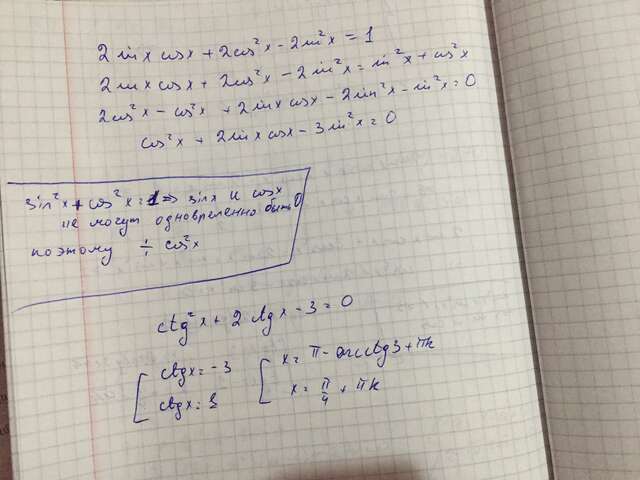 2 sin x cos x + 2cos²x - 2sin²x = 1
2 sin x cos x + 2cos²x - 2sin²x = sin²x + cos²x
2cos²x - cos²x + 2sin x cos x - 2sin²x - sin²x = 0
cos²x + 2sin x cos x - 3sin²x = 0
sin²x + cos²x = 1 ⇒ sin x и cos x
не могут одновременно быть 0
поэтому ÷ cos²x
ctg²x + 2ctg x - 3 = 0
[ ctg x = -3 [ x = π - arcctg 3 + πk
ctg x = 1 x = π/4 + πk